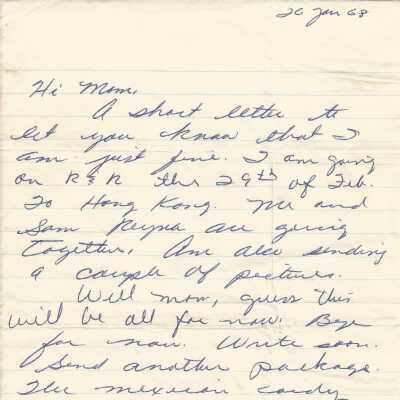 26 Jan 68
Hi Mom,
A short letter to
let you know that I
am just fine. I am going
on R & R the 29th of Feb.
To Hong Kong. Me and
Sam Reyna are going
together. Am also sending
a couple of pictures.
Well mom, guess this
will be all for now. Bye
for now. Write soon.
Send another package.
The mexican candy